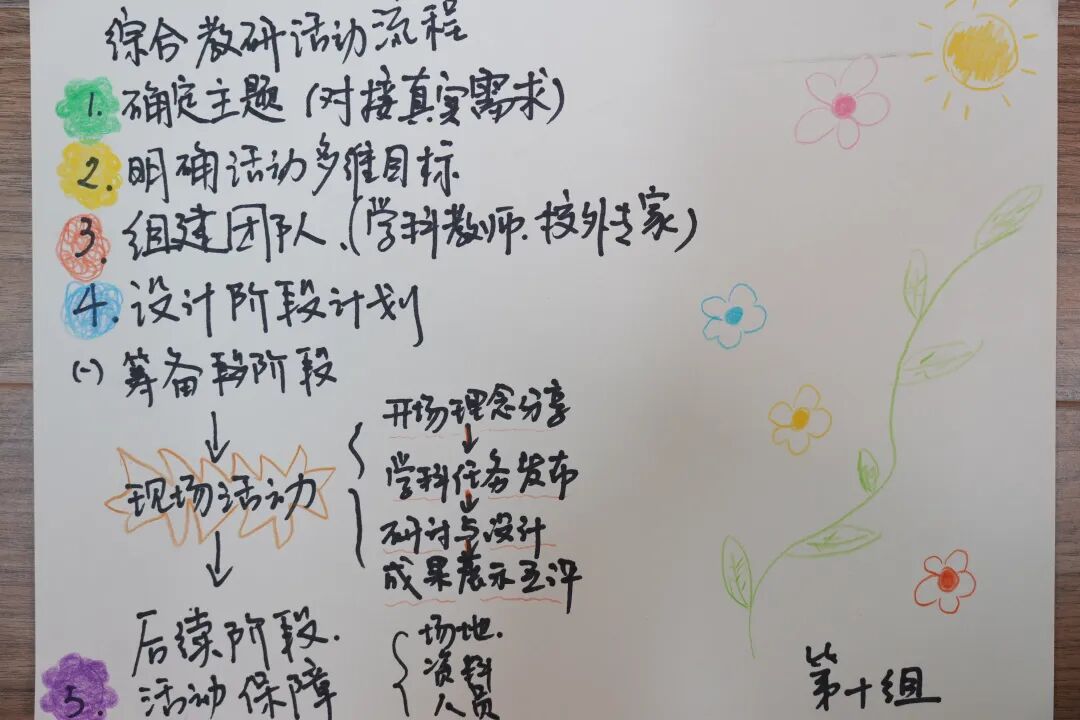 综合教研活动流程
1. 确定主题(对接真实需求)
2. 明确活动多维目标
3. 组建团队、(学科教师、校外专家)
4. 设计阶段计划
(一) 筹备阶段
开场理念分享
现场活动
学科任务发布
研讨与设计
成果展示互评
后续阶段.
5. 活动保障
场地.
资料
人员
第十组